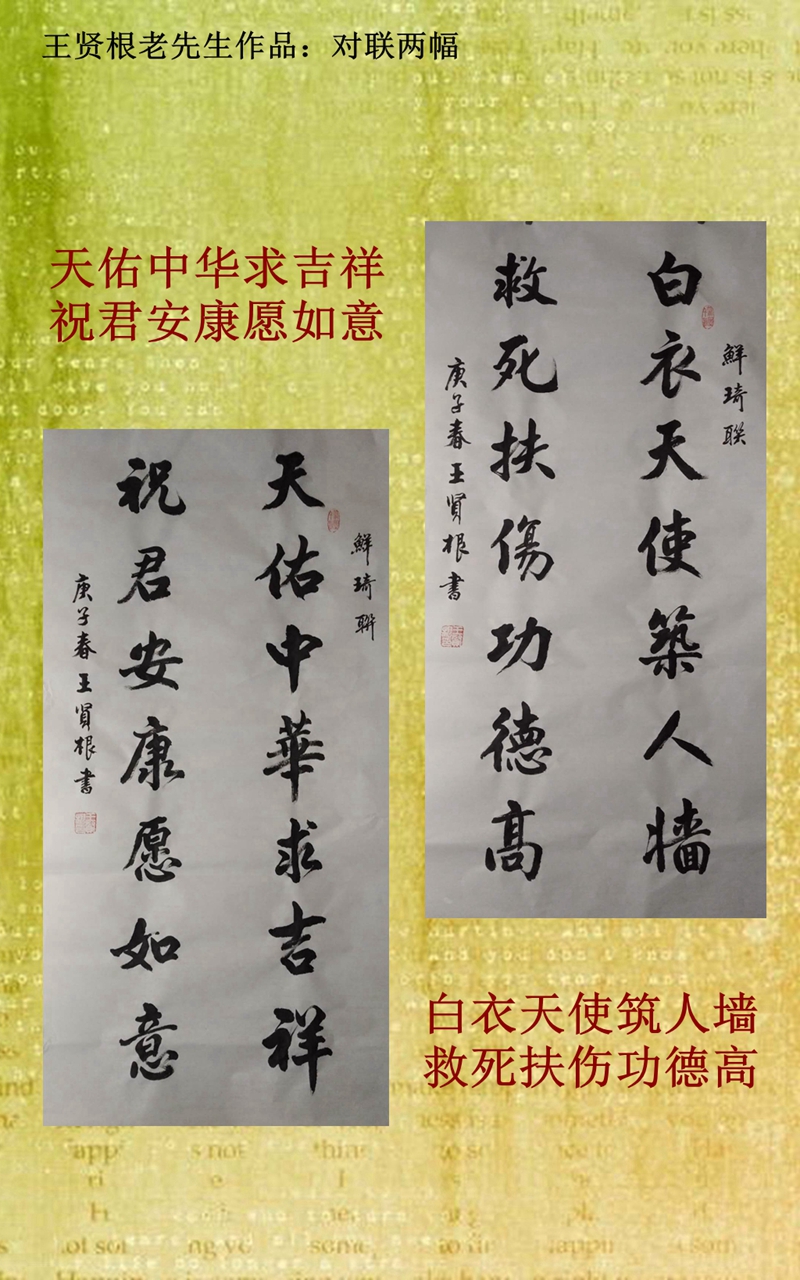 王贤根老先生作品：对联两幅
天佑中华求吉祥
祝君安康愿如意
鮮琦聯
天佑中華求吉祥
祝君安康愿如意
庚子春王賢根書
鮮琦聯
白衣天使築人墙
救死扶傷功德高
庚子春王賢根書
白衣天使筑人墙
救死扶伤功德高